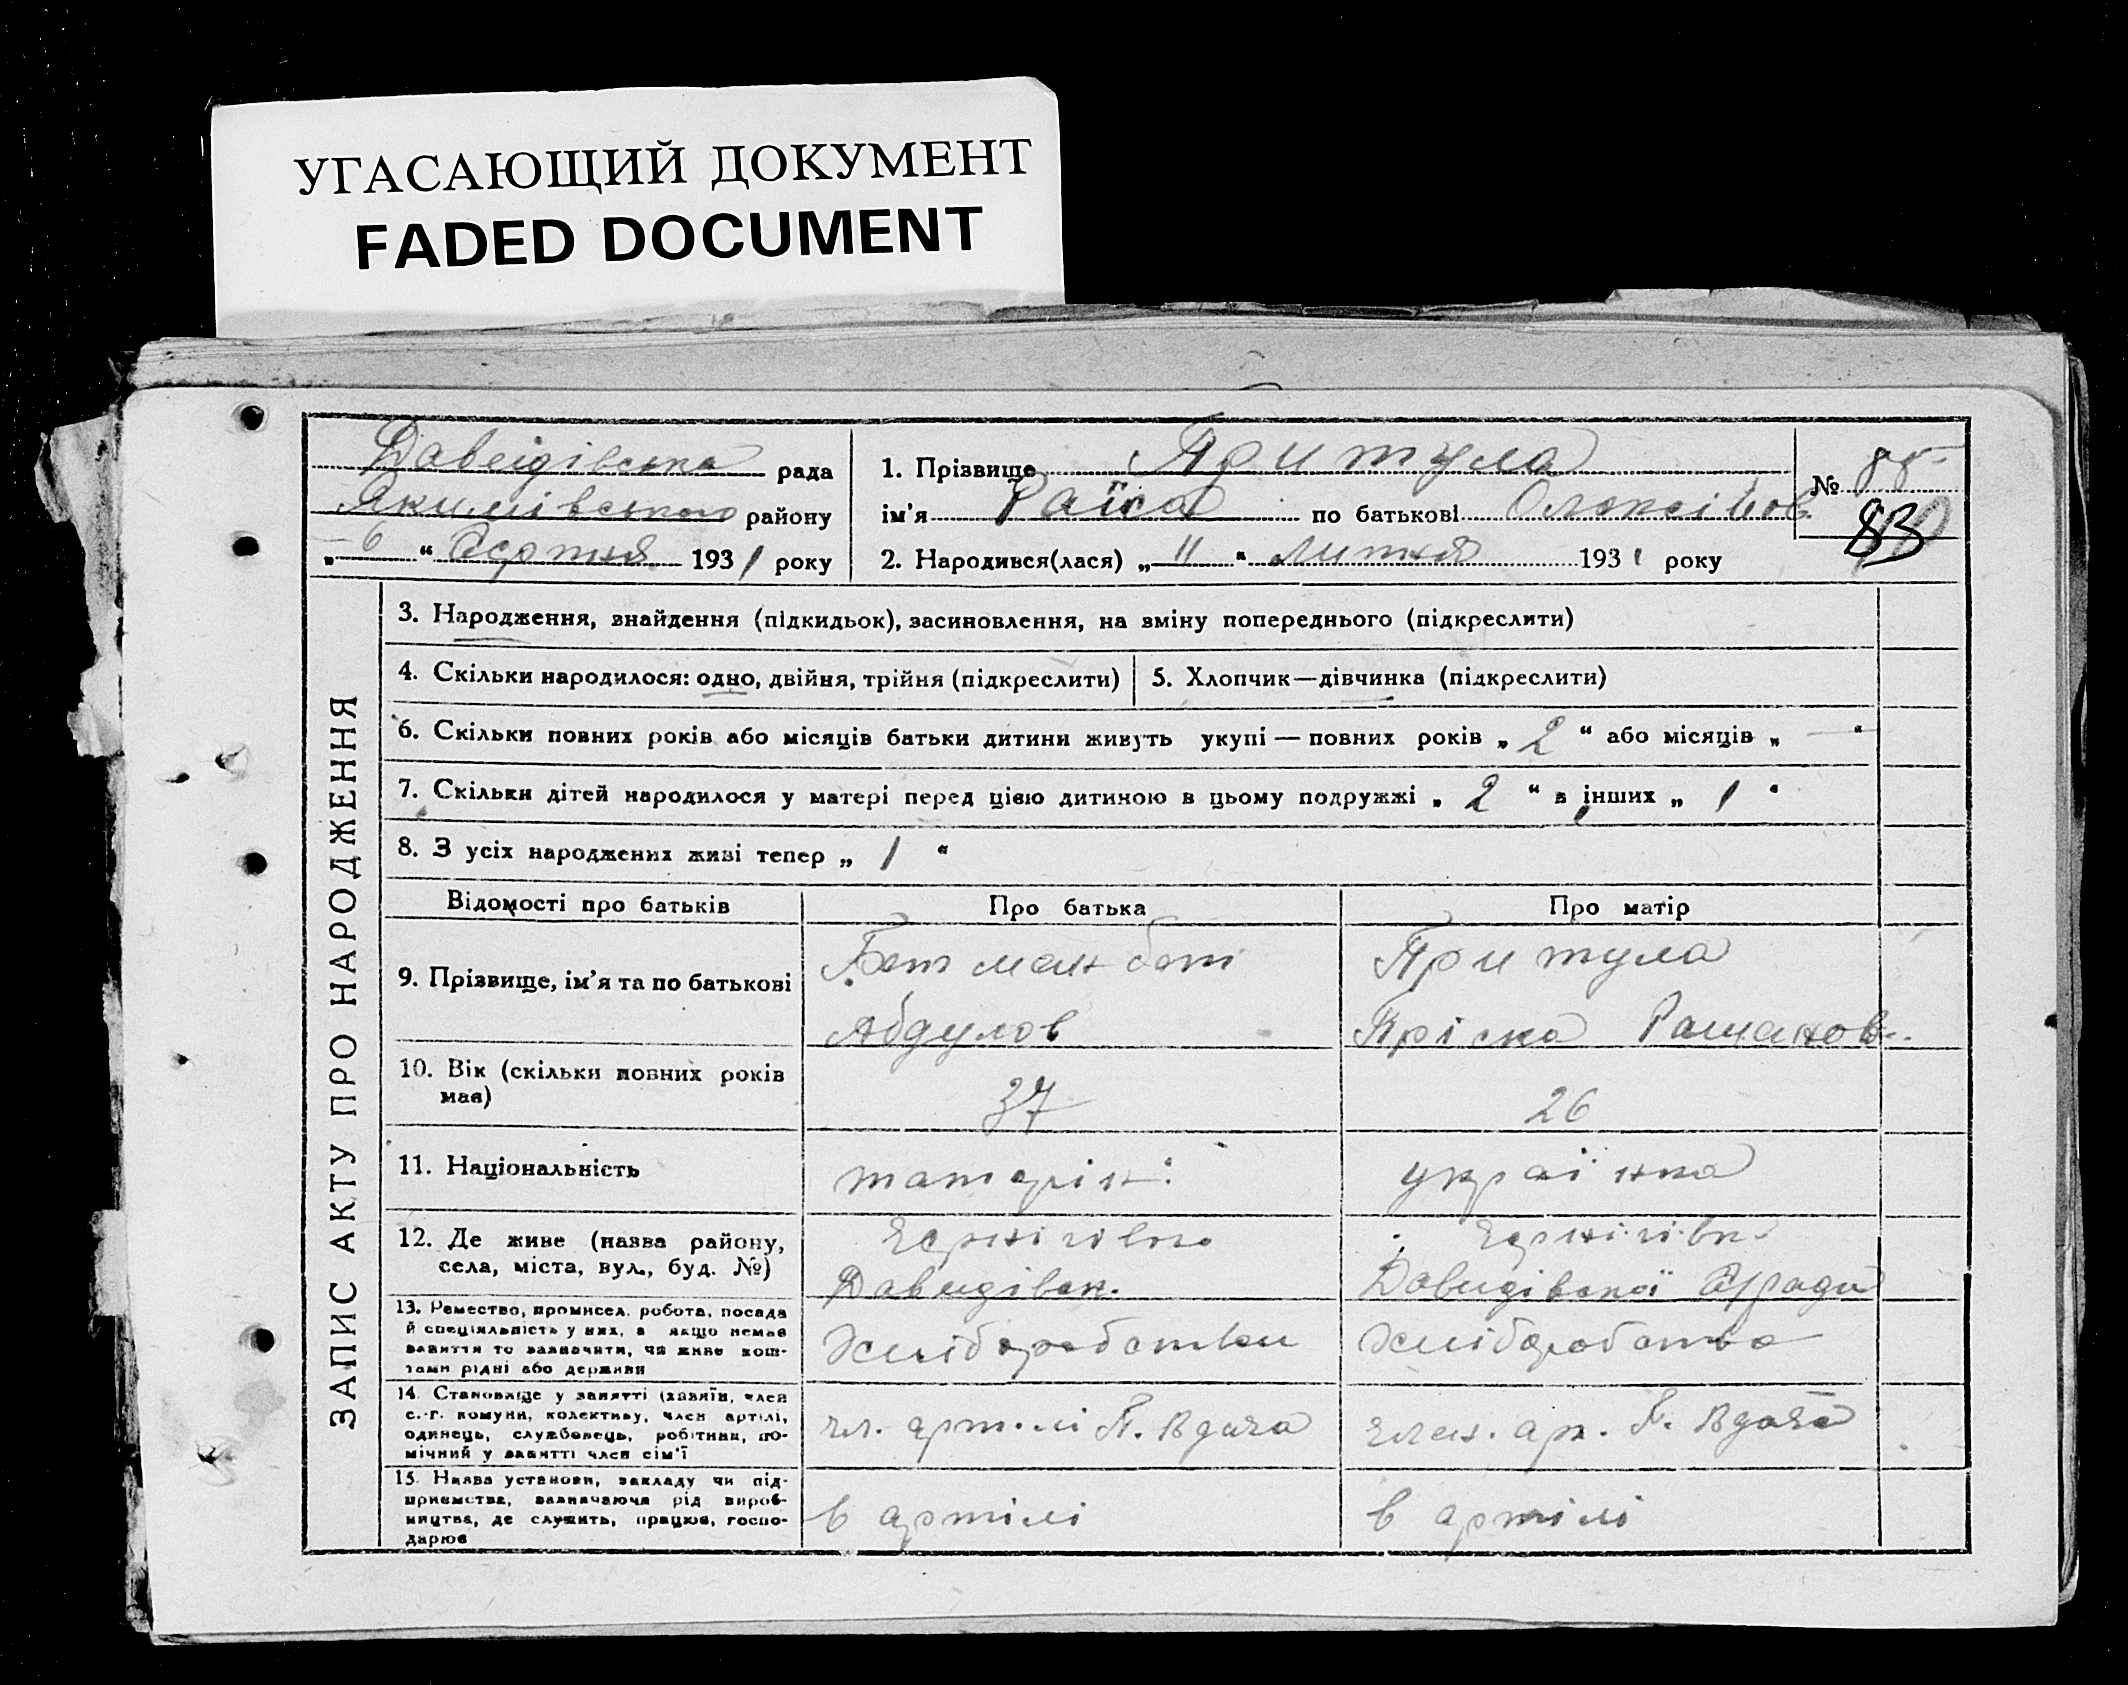 УГАСАЮЩИЙ ДОКУМЕНТ
FADED DOCUMENT
Давидівська рада
Якимівського району
„ 6 “ Серпня 1931 року
1. Прізвище Притула
ім'я Раїса по батькові Олексіівов.
2. Народився(лася) „ 11 “ Литня 1931 року
№ 88
83
ЗАПИС АКТУ ПРО НАРОДЖЕННЯ
3. Народження, знайдення (підкидьок), засиновлення, на зміну попереднього (підкреслити)
4. Скільки народилося: одно, двійня, трійня (підкреслити)
5. Хлопчик—дівчинка (підкреслити)
6. Скільки повних років або місяців батьки дитини живуть укупі — повних років „ 2 “ або місяців „ — “
7. Скільки дітей народилося у матері перед цією дитиною в цьому подружжі „ 2 “ в інших „ 1 “
8. З усіх народжених живі тепер „ 1 “
Відомості про батьків Про батька Про матір
9. Прізвище, ім'я та по батькові
Абдулов
Притула
Пріска
10. Вік (скільки повних років має)
37 26
11. Національність
татарін українка
12. Де живе (назва району,
села, міста, вул., буд. №)
Давидівськ.
Давидівської С/ради
13. Ремество, промисел, робота, посада
й спеціяльність у них, а якщо немає
заняття то зазначити, чи живе кош-
тами рідні або держави
Хліборобство
14. Становище у занятті (хазяїн, член
с.-г. комуни, колективу, член артілі,
одинець, службовець, робітник, по-
мічний у занятті член сім'ї
чл. артилі П. Вдача
член. ар. П. Вдача
15. Назва установи, закладу чи під-
приємства, зазначаючи рід вироб-
ництва, де служить, працює, госпо-
дарює
в артілі
в артілі